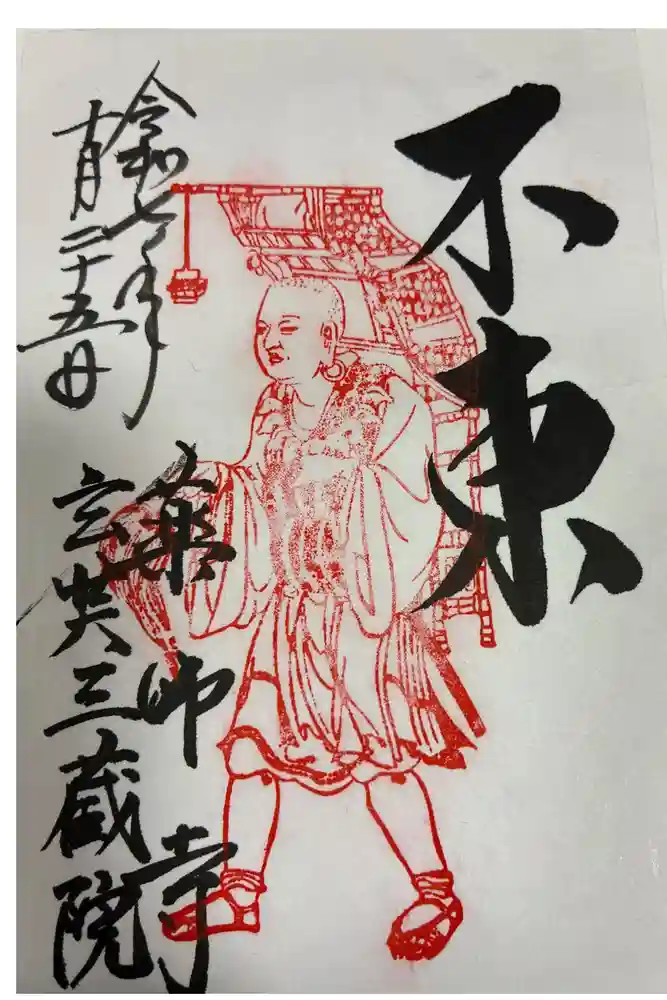 不東
薬師寺
玄奘三蔵院
令和七年
十月二十五日